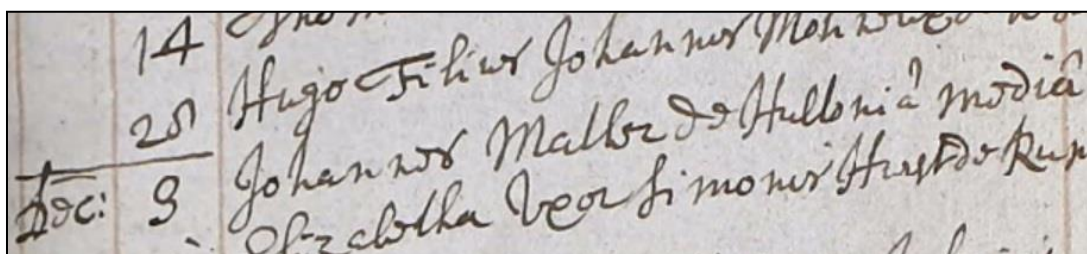 14 Hugo Filius Johannis
28 Johannes Maller de Hulloniâ mediâ
Dec: 3 Elizabetha Uxor Simonis Hurst de